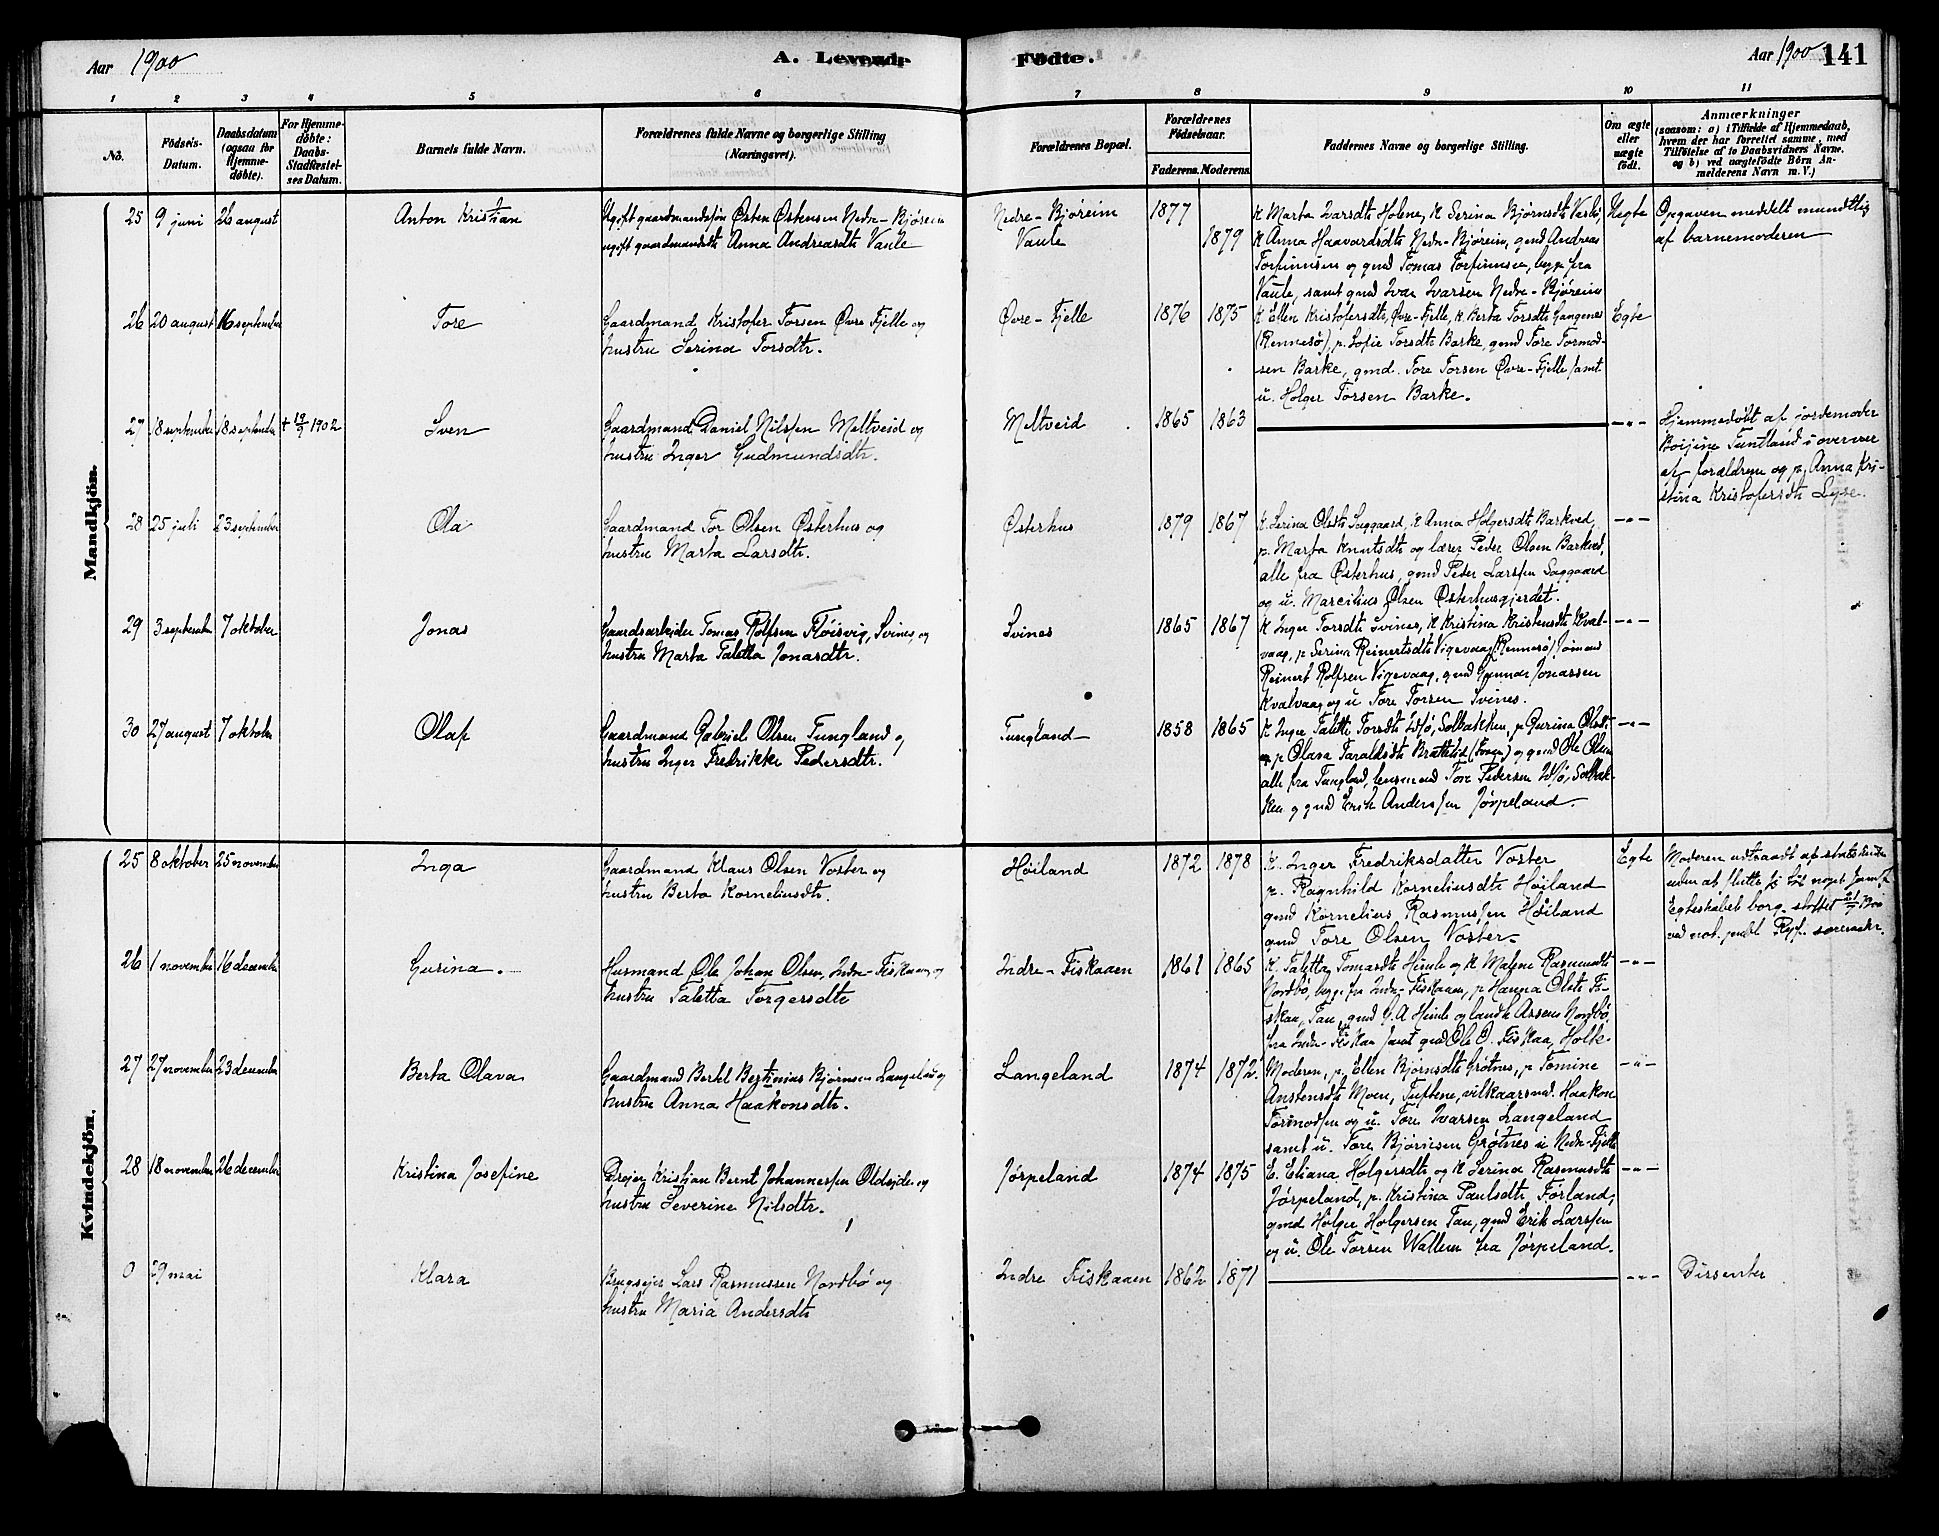 Aar 1900
A. Levende Fødte.
Aar 1900 141
1 2 3 4 5 6 7 8 9 10 11
No.
Fødsels-
Datum.
Daabsdatum
(ogsaa for
Hjemme-
døbte).
For Hjemme-
døbte:
Daabs-
Stadfæstel-
ses Datum.
Barnets fulde Navn.
Forældrenes fulde Navne og borgerlige Stilling
(Næringsvei).
Forældrenes Bopæl.
Forældrenes
Fødselsaar.
Faderens. Moderens.
Faddernes Navne og borgerlige Stilling.
Om ægte
eller
uægte
født.
Anmærkninger
(saasom: a) i Tilfælde af Hjemmedaab,
hvem der har forrettet samme, med
Tilføielse af to Daabsvidners Navne,
og b) ved uægtefødte Børn An-
melderens Navn m. V.)
Mandkjön.
25 9 juni 26 august
Anton Kristian
Ugift gaardmandssøn Østen Østensen Nedre-Bjøreim
ugift gaardmandsdtr Anna Andreasdtr Vaule
Nedre-Bjøreim
Vaule
1877
1879
K Marta Ivarsdtr Holene, K Serina Bjørnsdtr Vasbø,
K Anna Haavardsdtr Nedre-Bjøreim, gmd Andreas
Torfinnsen og gmd Tomas Torfinnsen, begge fra
Vaule, samt gmd Ivar Ivarsen Nedre-Bjøreim
Uegte
Opgaven meddelt mundtlig
af barnemoderen
26 20 august 16 september
Tore
Gaardmand Kristofer Torsen Øvre Fjelle og
hustru Serina Torsdtr.
Øvre-Fjelle
1876 1875
K Ellen Kristofersdtr, Øvre-Fjelle, K. Berta Torsdtr Gangenes
(Rennesø), p. Sofie Torsdtr Barke, gmd Tore Tormod-
sen Barke, gmd. Tore Torsen Øvre-Fjelle samt
u. Holger Torsen Barke.
Egte
27 18 september 18 september † 19/9 1902
Sven
Gaardmand Daniel Nilssen Meltveid og
hustru Inger Gudmundsdtr.
Meltveid
1865 1863
-"-
Hjemmedøbt af jordemoder
Tuntland i overvær
af forældrene og p. Anna Kri-
stina Kristofersdtr Lyse.
28 25 juli 23 september
Ola
Gaardmand Tor Olsen Østerhus og
hustru Marta Larsdtr.
Østerhus
1879 1867
K. Serina Olsdtr Saggaard, K Anna Holgersdtr Barkved,
p. Marta Knutsdtr og lærer Peder Olsen Barkved,
alle fra Østerhus, gmd Peder Larssen Saggaard
og u. Marcilius Olsen Østerhusgjerdet.
-"-
29 3 september 7 oktober
Jonas
Gaardsarbeider Tomas Rolfsen Fløisvig, Svines, og
hustru Marta Taletta Jonasdtr.
Svines
1865 1867
K Inger Torsdtr Svines, K Kristina Kristensdtr Kval-
vaag, p Serina Reinertsdtr Vigevaag (Rennesø) sømand
Reinert Rolfsen Vigevaag, gmd Gunnar Jonassen
Kvalvaag og u Tore Torsen Svines.
-"-
30 27 august 7 oktober
Olaf
Gaardmand Gabriel Olsen Tungland og
hustru Inger Fredrikke Pedersdtr.
Tungland
1858 1865
K Inger Talette Torsdtr Idsø, Solbakken, p Gurina Olsdtr
og p Olava Taraldsdtr Bratteli (Fossan) og gmd Ole Olsen
alle fra Tungland, lensmand Tore Pedersen Idsø, Solbak-
ken og gmd Erik Anderssen Jørpeland.
-"-
Kvindekjön.
25 8 oktober 25 november
Inga
Gaardmand Klaus Olsen Voster og
hustru Berta Korneliusdtr.
Høiland
1872 1878
K. Inger Fredriksdatter Voster
p. Ragnhild Korneliusdtr Høiland
gmd Kornelius Rasmussen Høiland
gmd Tore Olsen Voster.
Egte
Moderen udtraadt af statskirken
uden at slutte sig til noget samf.
Egteskabet borg. stiftet 21/7 1900
ved not. publ. Ryf. sorenskr.
26 1 november 16 december
Gurina.
Husmand Ole Johan Olsen, Indre-Fiskaaen, og
hustru Taletta Torgersdtr
Indre-Fiskaaen
1861 1865
K. Taletta Tomasdtr Himle og K Malene Rasmusdtr
Nordbø, begge fra Indre-Fiskaaen, p Hanna Olsdtr Fi-
skaa, Tau, gmd A Himle og landh Assens Nordbø
fra Indre-Fiskaa samt gmd Ole O. Fiskaa, Holte.
-"-
27 27 november 23 december
Berta Olava
Gaardmand Bertel Bertinius Bjørnsen Langeland og
hustru Anna Haakonsdtr.
Langeland
1874 1872.
Moderen, p. Ellen Bjørnsdtr Grøtnes, p Tomine
Anstensdtr Moen, Tuftene, vilkaarsmd. Haakon
Tormodsen og u. Tore Ivarsen Langeland
samt u. Tore Bjørnsen Grøtnes u. Nedre-Fjelle
-"-
28 18 november 26 december
Kristina Josefine
Dreier Kristian Bernt Johannessen Oldeide og
hustru Severine Nilsdtr.
Jørpeland
1874 1875
E. Eliana Holgersdtr og K Serina Rasmusdtr
Jørpeland, p. Kristina Paulsdtr Førland,
gmd Holger Holgersen Tau, gmd Erik Larssen
og u. Ole Torsen Wallem fra Jørpeland.
-"-
0 29 mai
Klara
Brugseier Lars Rasmussen Nordbø og
hustru Maria Andersdtr
Indre Fiskaaen
1862 1871
-"-
Dissenter